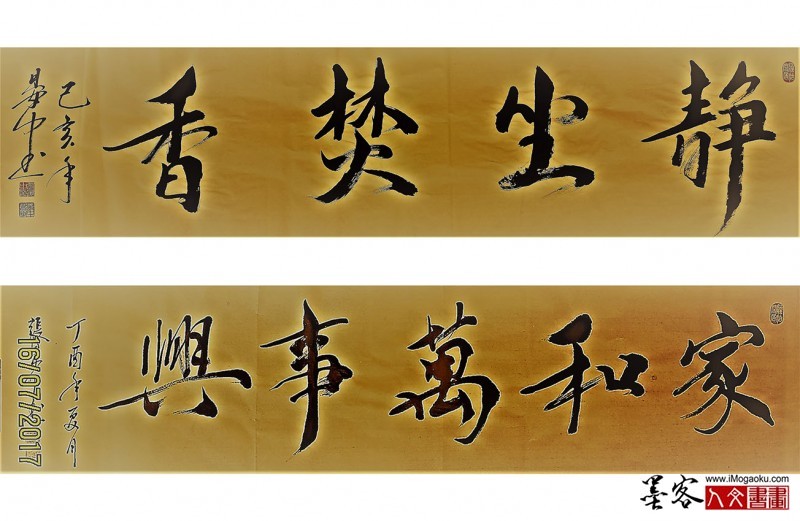 静坐焚香
己亥年
易中書
家和萬事興
丁酉年夏月
16/07/2017
墨客
www.iMogaoku.com
人文書畫